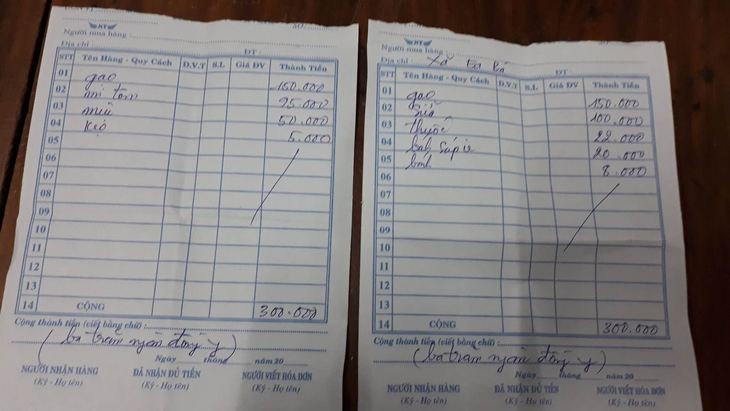 NT
Người mua hàng :
Địa chỉ :
ĐT :
STT Tên Hàng - Quy Cách Đ.V.T S.L Giá ĐV Thành Tiền
01 gạo 150.000
02 mì tôm 95.000
03 muối 50.000
04 kẹo 5.000
05
06
07
08
09
10
11
12
13
14 CỘNG 300.000
Cộng thành tiền (viết bằng chữ) :
(ba trăm ngàn đồng y)
Ngày tháng năm 20
NGƯỜI NHẬN HÀNG ĐÃ NHẬN ĐỦ TIỀN NGƯỜI VIẾT HÓA ĐƠN
(Ký - Họ tên) (Ký - Họ tên) (Ký - Họ tên)
NT
Người mua hàng :
Địa chỉ : Xã
ĐT
STT Tên Hàng - Quy Cách Đ.V.T S.L Giá ĐV Thành Tiền
01 gạo 150.000
02 sữa 100.000
03 thuốc 22.000
04 20.000
05 bánh 8.000
06
07
08
09
10
11
12
13
14 CỘNG 300.000
Cộng thành tiền (viết bằng chữ) :
(ba trăm ngàn đồng y)
Ngày tháng năm 20
NGƯỜI NHẬN HÀNG ĐÃ NHẬN ĐỦ TIỀN NGƯỜI VIẾT HÓA ĐƠN
(Ký - Họ tên) (Ký - Họ tên) (Ký - Họ tên)